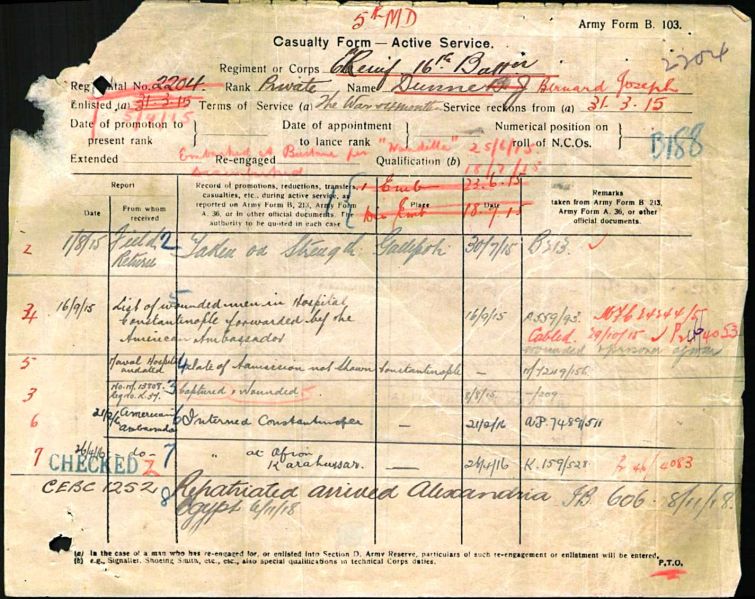 5th MD
Army Form B. 103.
Casualty Form — Active Service.
2204
Regiment or Corps Reinf 16th Battn
Regimental No. 2204. Rank Private Name Dunne B J Bernard Joseph
Enlisted (a) 31-3-15 Terms of Service (a) The War Service reckons from (a) 31.3.15
Date of promotion to present rank
Date of appointment to lance rank
Numerical position on roll of N.C.Os.
B188
Extended Re-engaged Qualification (b)
Embarked at per 25/6/15
Disembarked 18/7/15
Report
Date
From whom received
Record of promotions, reductions, transfers, casualties, etc., during active service, as reported on Army Form B. 213, Army Form A. 36, or in other official documents. The authority to be quoted in each case
Place
Date
Remarks taken from Army Form B. 213, Army Form A. 36, or other official documents.
1 Emb 23.6.15
Dis Emb 18.7.15
2 1/8/15 Field Return 2 Taken on Strength Gallipoli 30/7/15 B213.
3/4 16/9/15 5 List of wounded men in Hospital, Constantinople forwarded by the American Ambassador 16/9/15 A559/93.
Cabled. 29/10/15
5 Naval Hospital undated 4 date of admission not shown Constantinople —
3 3 Captured & Wounded 5 8/8/15 —/209.
6 21/2/16 American Ambassador 6 Interned Constantinople — 21/2/16 A.P. 7489/511
7 26/4/16 -do- 7 " at Afion Karahissar — 26/4/16 K.159/528.
CHECKED
CEBC 1252 8 Repatriated arrived Alexandria Egypt 6/11/18 I.B. 606. 8/11/18.
(a) In the case of a man who has re-engaged for, or enlisted into Section D, Army Reserve, particulars of such re-engagement or enlistment will be entered.
(b) e.g., Signaller, Shoeing Smith, etc., etc., also special qualifications in technical Corps duties.
P.T.O.